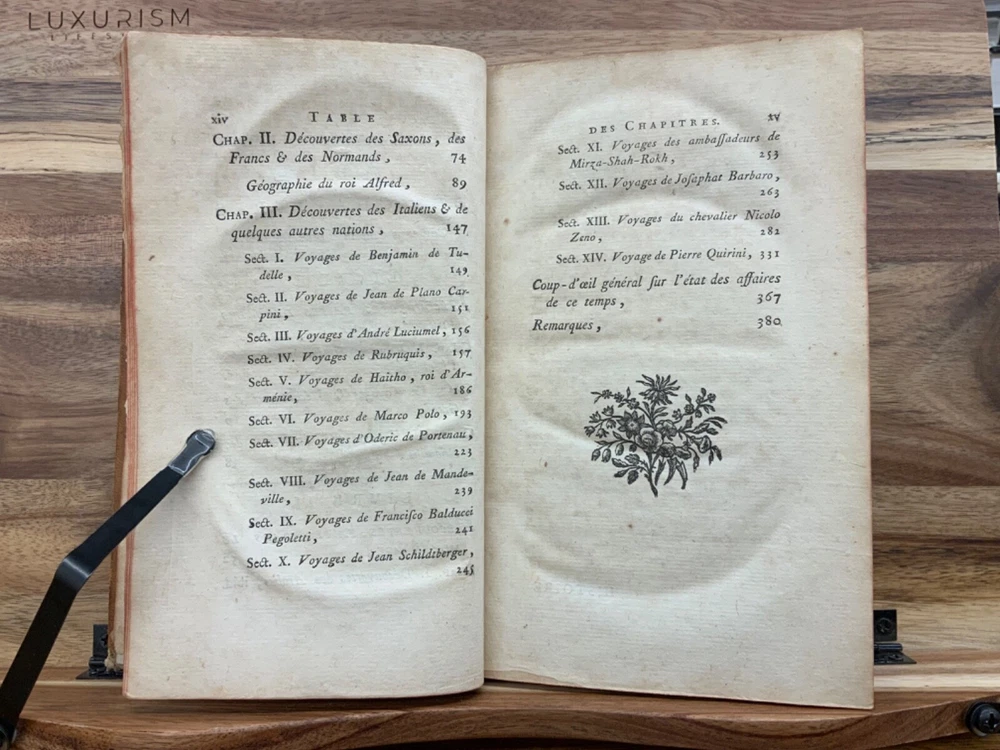 LUXURISM
xiv TABLE
CHAP. II. Découvertes des Saxons, des
Francs & des Normands, 74
Géographie du roi Alfred, 89
CHAP. III. Découvertes des Italiens & de
quelques autres nations, 147
Sect. I. Voyages de Benjamin de Tu-
delle, 149
Sect. II. Voyages de Jean de Plano Car-
pini, 151
Sect. III. Voyages d'André Luciumel, 156
Sect. IV. Voyages de Rubruquis, 157
Sect. V. Voyages de Haitho, roi d'Ar-
ménie, 186
Sect. VI. Voyages de Marco Polo, 193
Sect. VII. Voyages d'Oderic de Portenau,
223
Sect. VIII. Voyages de Jean de Mande-
ville, 239
Sect. IX. Voyages de Franciſco Balducci
Pegoletti, 241
Sect. X. Voyages de Jean Schildtberger,
245
DES CHAPITRES. xv
Sect. XI. Voyages des ambaſſadeurs de
Mirza-Shah-Rokh, 253
Sect. XII. Voyages de Joſaphat Barbaro,
263
Sect. XIII. Voyages du chevalier Nicolo
Zeno, 282
Sect. XIV. Voyage de Pierre Quirini, 331
Coup-d'œil général ſur l'état des affaires
de ce temps, 367
Remarques, 380